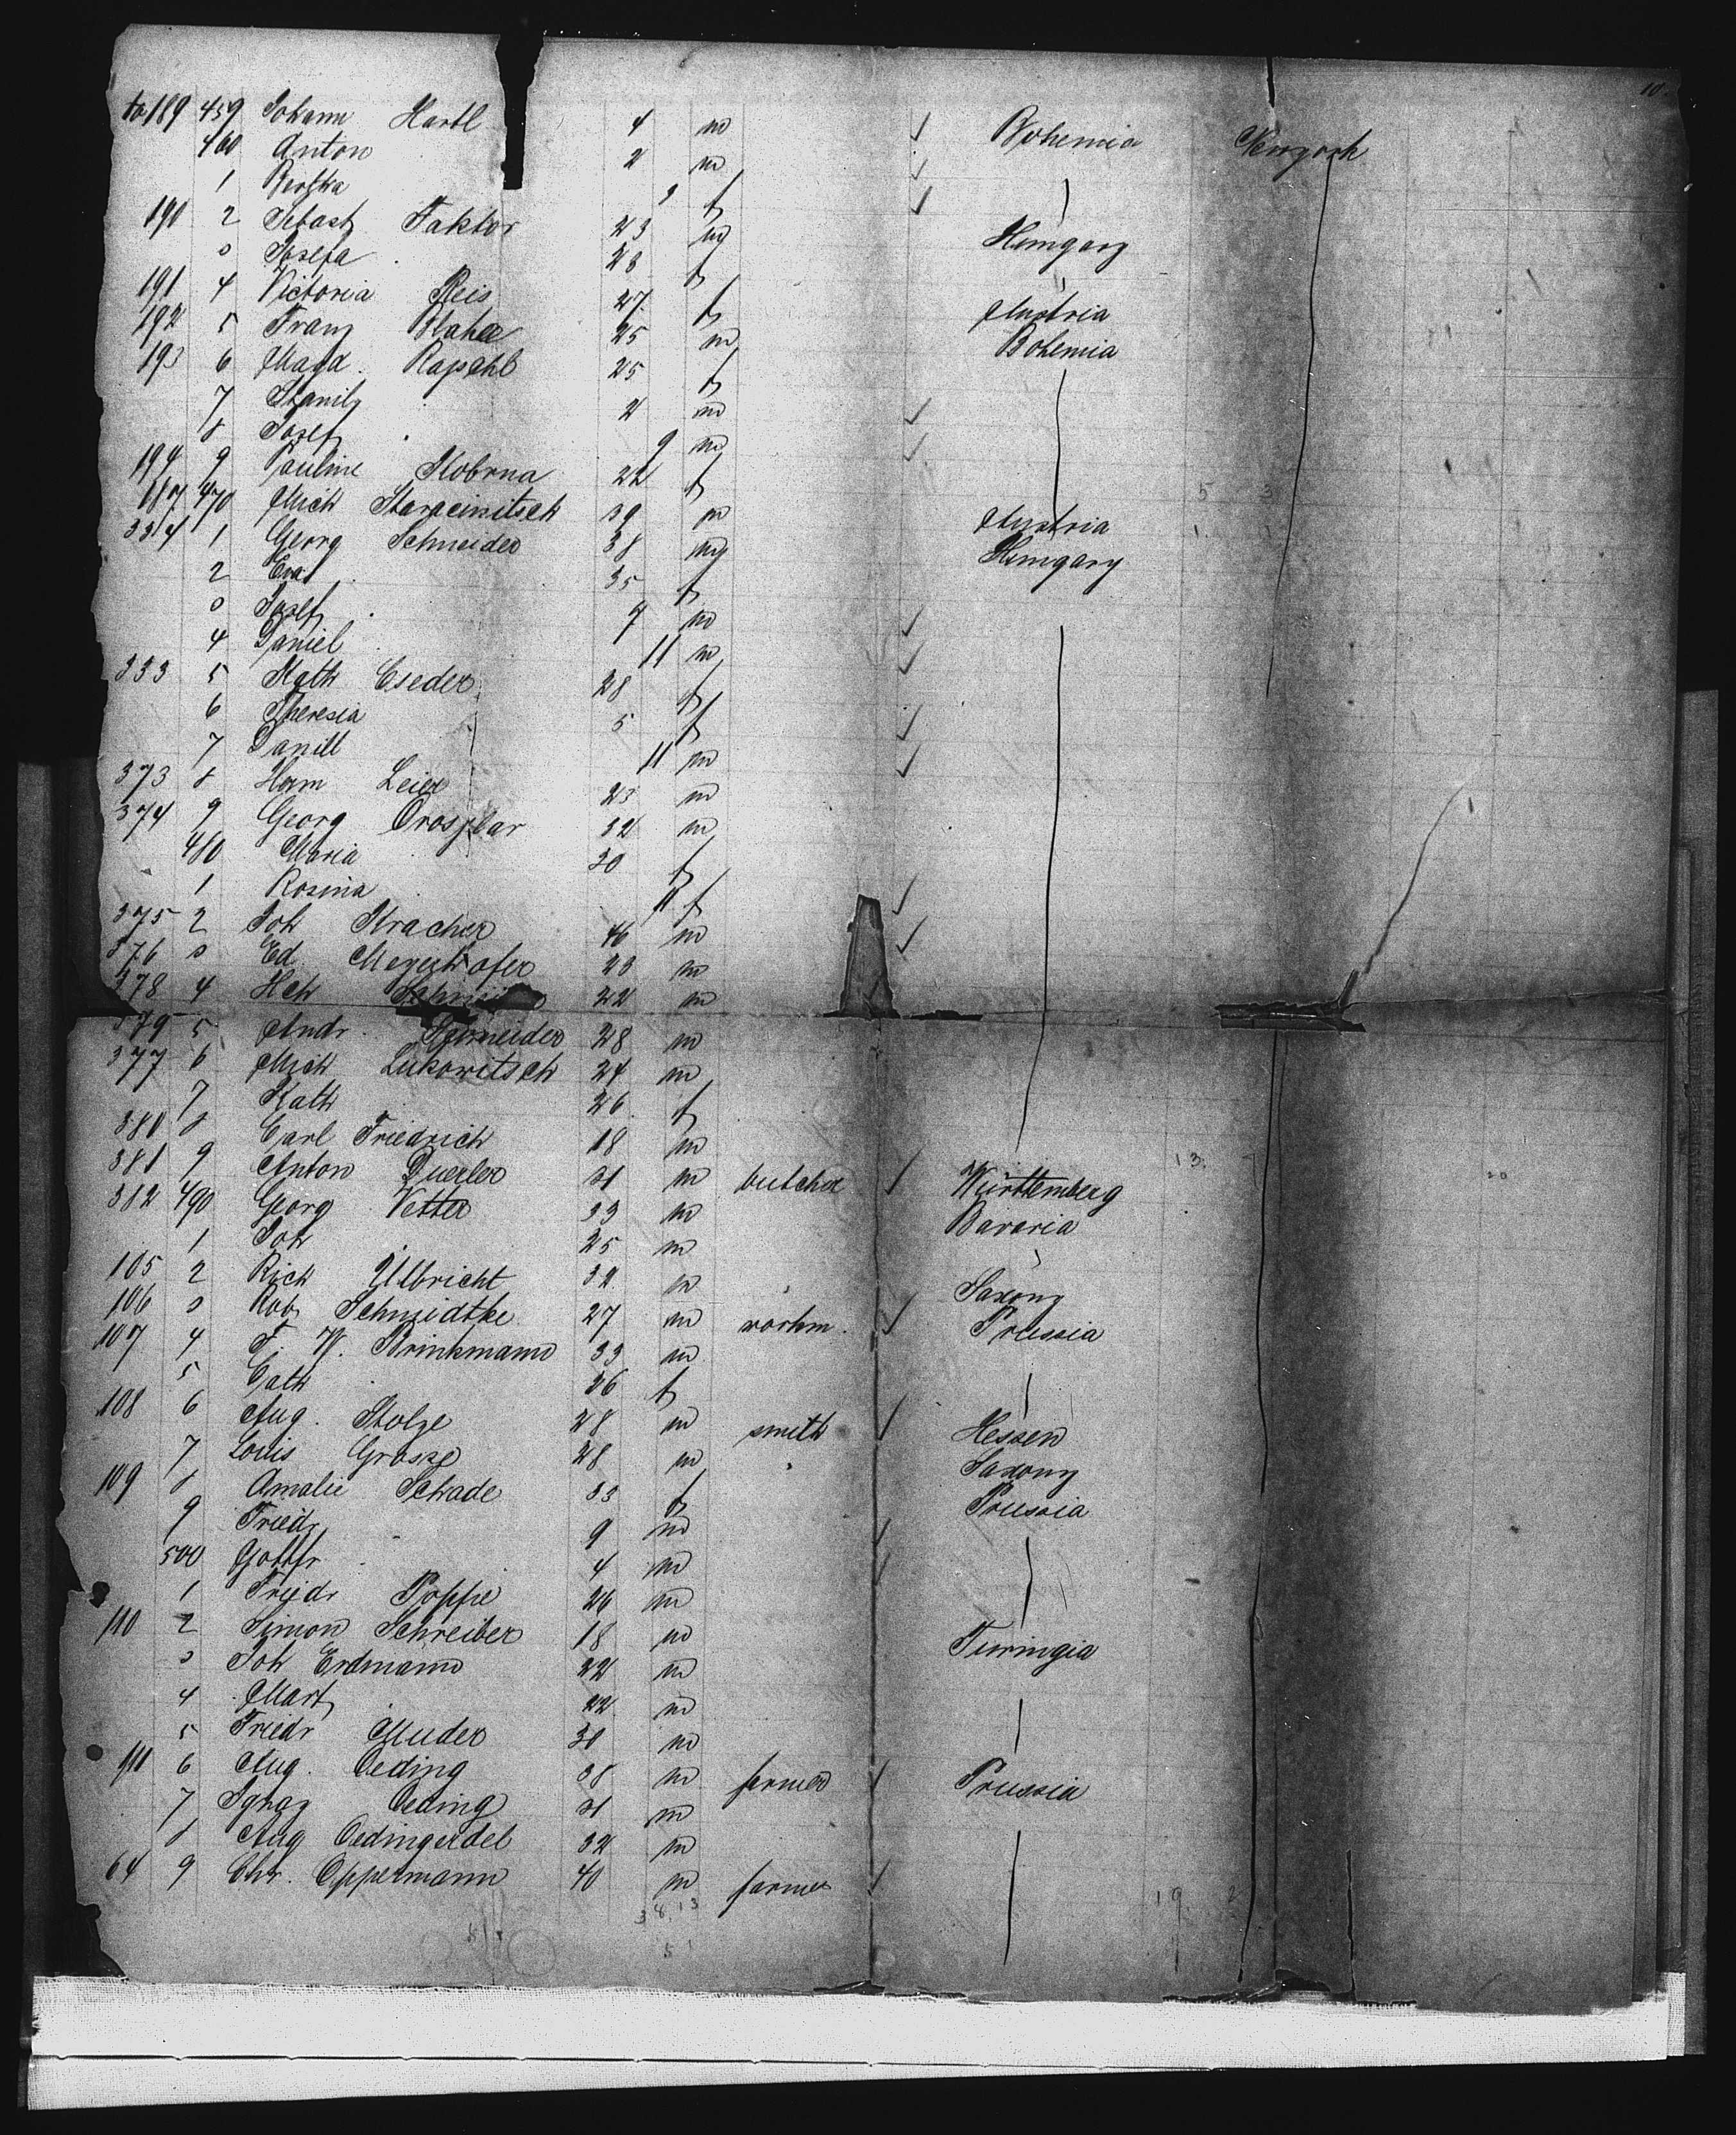 10
to 189 459 Johann Hartl 4 m ✓ Bohemia Newyork
460 Anton 2 m ✓
1 f ✓
190 2 Sebast Faktor 23 m Hungary
3 Josefa 28 f
191 4 Victoria Reis 27 f Austria
192 5 Franz Blaha 25 m Bohemia
193 6 Magd. 25 f
7 2 m ✓
8 Josef 9 m ✓
194 9 Pauline Kobrna 22 f
187 470 Mich Staracinitsch 39 m Austria
334 1 Georg Schneider 38 m Hungary
2 Eva 35 f
3 Josef 7 m ✓
4 Daniel 11 m ✓
333 5 Kath Eseder 28 f
6 Theresia 5 f ✓
7 Daniel 11 m ✓
373 8 Herm Leier 23 m
374 9 Georg 32 m
480 Maria 30 f
1 Rosina 11 f ✓
375 2 Joh Stracher 46 m ✓
376 3 Ed 23 m
378 4 Hch 22 m
379 5 Andr. Schneider 28 m
377 6 Mich Lukowitsch 24 m
7 Kath 26 f
380 8 Carl Friedrich 18 m
381 9 Anton Duerler 31 m butcher ✓ Württemberg
382 490 Georg Vetter 33 m Bavaria
1 Joh 25 m
105 2 Rich Ulbricht 32 m Saxony
106 3 Rob Schmidtke 27 m workm. ✓ Prussia
107 4 F. W. Brinkmann 33 m
5 Cath 26 f
108 6 Aug. Stolze 28 m smith ✓ Hessen
7 Louis Grosse 28 m Saxony
109 8 Amalie Schade 33 f Prussia
9 Friedr 9 m ✓
500 Gottfr 4 m ✓
1 Friedr Poppe 26 m
110 2 Simon Schreiber 18 m Turingia
3 Joh Erdmann 22 m
4 Mart 22 m
5 Friedr Muder 30 m
111 6 Aug. Oeding 38 m farmer ✓ Prussia
7 Ignaz Oeding 31 m
8 Aug Oedingerdel 32 m
64 9 Chr. Oppermann 40 m farmer ✓
38 13
51